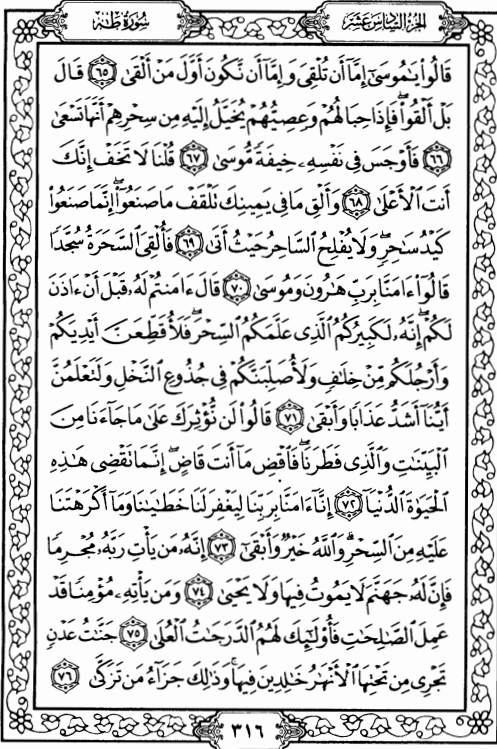 سُورَةُ طٰهٰ الجُزْءُ السَّادِسَ عَشَرَ
قَالُوا۟ يَـٰمُوسَىٰٓ إِمَّآ أَن تُلْقِىَ وَإِمَّآ أَن نَّكُونَ أَوَّلَ مَنْ أَلْقَىٰ ٦٥ قَالَ
بَلْ أَلْقُوا۟ ۖ فَإِذَا حِبَالُهُمْ وَعِصِيُّهُمْ يُخَيَّلُ إِلَيْهِ مِن سِحْرِهِمْ أَنَّهَا تَسْعَىٰ
٦٦ فَأَوْجَسَ فِى نَفْسِهِۦ خِيفَةً مُّوسَىٰ ٦٧ قُلْنَا لَا تَخَفْ إِنَّكَ
أَنتَ ٱلْأَعْلَىٰ ٦٨ وَأَلْقِ مَا فِى يَمِينِكَ تَلْقَفْ مَا صَنَعُوٓا۟ ۖ إِنَّمَا صَنَعُوا۟
كَيْدُ سَـٰحِرٍ ۖ وَلَا يُفْلِحُ ٱلسَّاحِرُ حَيْثُ أَتَىٰ ٦٩ فَأُلْقِىَ ٱلسَّحَرَةُ سُجَّدًا
قَالُوٓا۟ ءَامَنَّا بِرَبِّ هَـٰرُونَ وَمُوسَىٰ ٧٠ قَالَ ءَامَنتُمْ لَهُۥ قَبْلَ أَنْ ءَاذَنَ
لَكُمْ ۖ إِنَّهُۥ لَكَبِيرُكُمُ ٱلَّذِى عَلَّمَكُمُ ٱلسِّحْرَ ۖ فَلَأُقَطِّعَنَّ أَيْدِيَكُمْ
وَأَرْجُلَكُم مِّنْ خِلَـٰفٍ وَلَأُصَلِّبَنَّكُمْ فِى جُذُوعِ ٱلنَّخْلِ وَلَتَعْلَمُنَّ
أَيُّنَآ أَشَدُّ عَذَابًا وَأَبْقَىٰ ٧١ قَالُوا۟ لَن نُّؤْثِرَكَ عَلَىٰ مَا جَآءَنَا مِنَ
ٱلْبَيِّنَـٰتِ وَٱلَّذِى فَطَرَنَا ۖ فَٱقْضِ مَآ أَنتَ قَاضٍ ۖ إِنَّمَا تَقْضِى هَـٰذِهِ
ٱلْحَيَوٰةَ ٱلدُّنْيَآ ٧٢ إِنَّآ ءَامَنَّا بِرَبِّنَا لِيَغْفِرَ لَنَا خَطَـٰيَـٰنَا وَمَآ أَكْرَهْتَنَا
عَلَيْهِ مِنَ ٱلسِّحْرِ ۗ وَٱللَّهُ خَيْرٌ وَأَبْقَىٰٓ ٧٣ إِنَّهُۥ مَن يَأْتِ رَبَّهُۥ مُجْرِمًا
فَإِنَّ لَهُۥ جَهَنَّمَ لَا يَمُوتُ فِيهَا وَلَا يَحْيَىٰ ٧٤ وَمَن يَأْتِهِۦ مُؤْمِنًا قَدْ
عَمِلَ ٱلصَّـٰلِحَـٰتِ فَأُو۟لَـٰٓئِكَ لَهُمُ ٱلدَّرَجَـٰتُ ٱلْعُلَىٰ ٧٥ جَنَّـٰتُ عَدْنٍ
تَجْرِى مِن تَحْتِهَا ٱلْأَنْهَـٰرُ خَـٰلِدِينَ فِيهَا ۚ وَذَٰلِكَ جَزَآءُ مَن تَزَكَّىٰ ٧٦
٣١٦